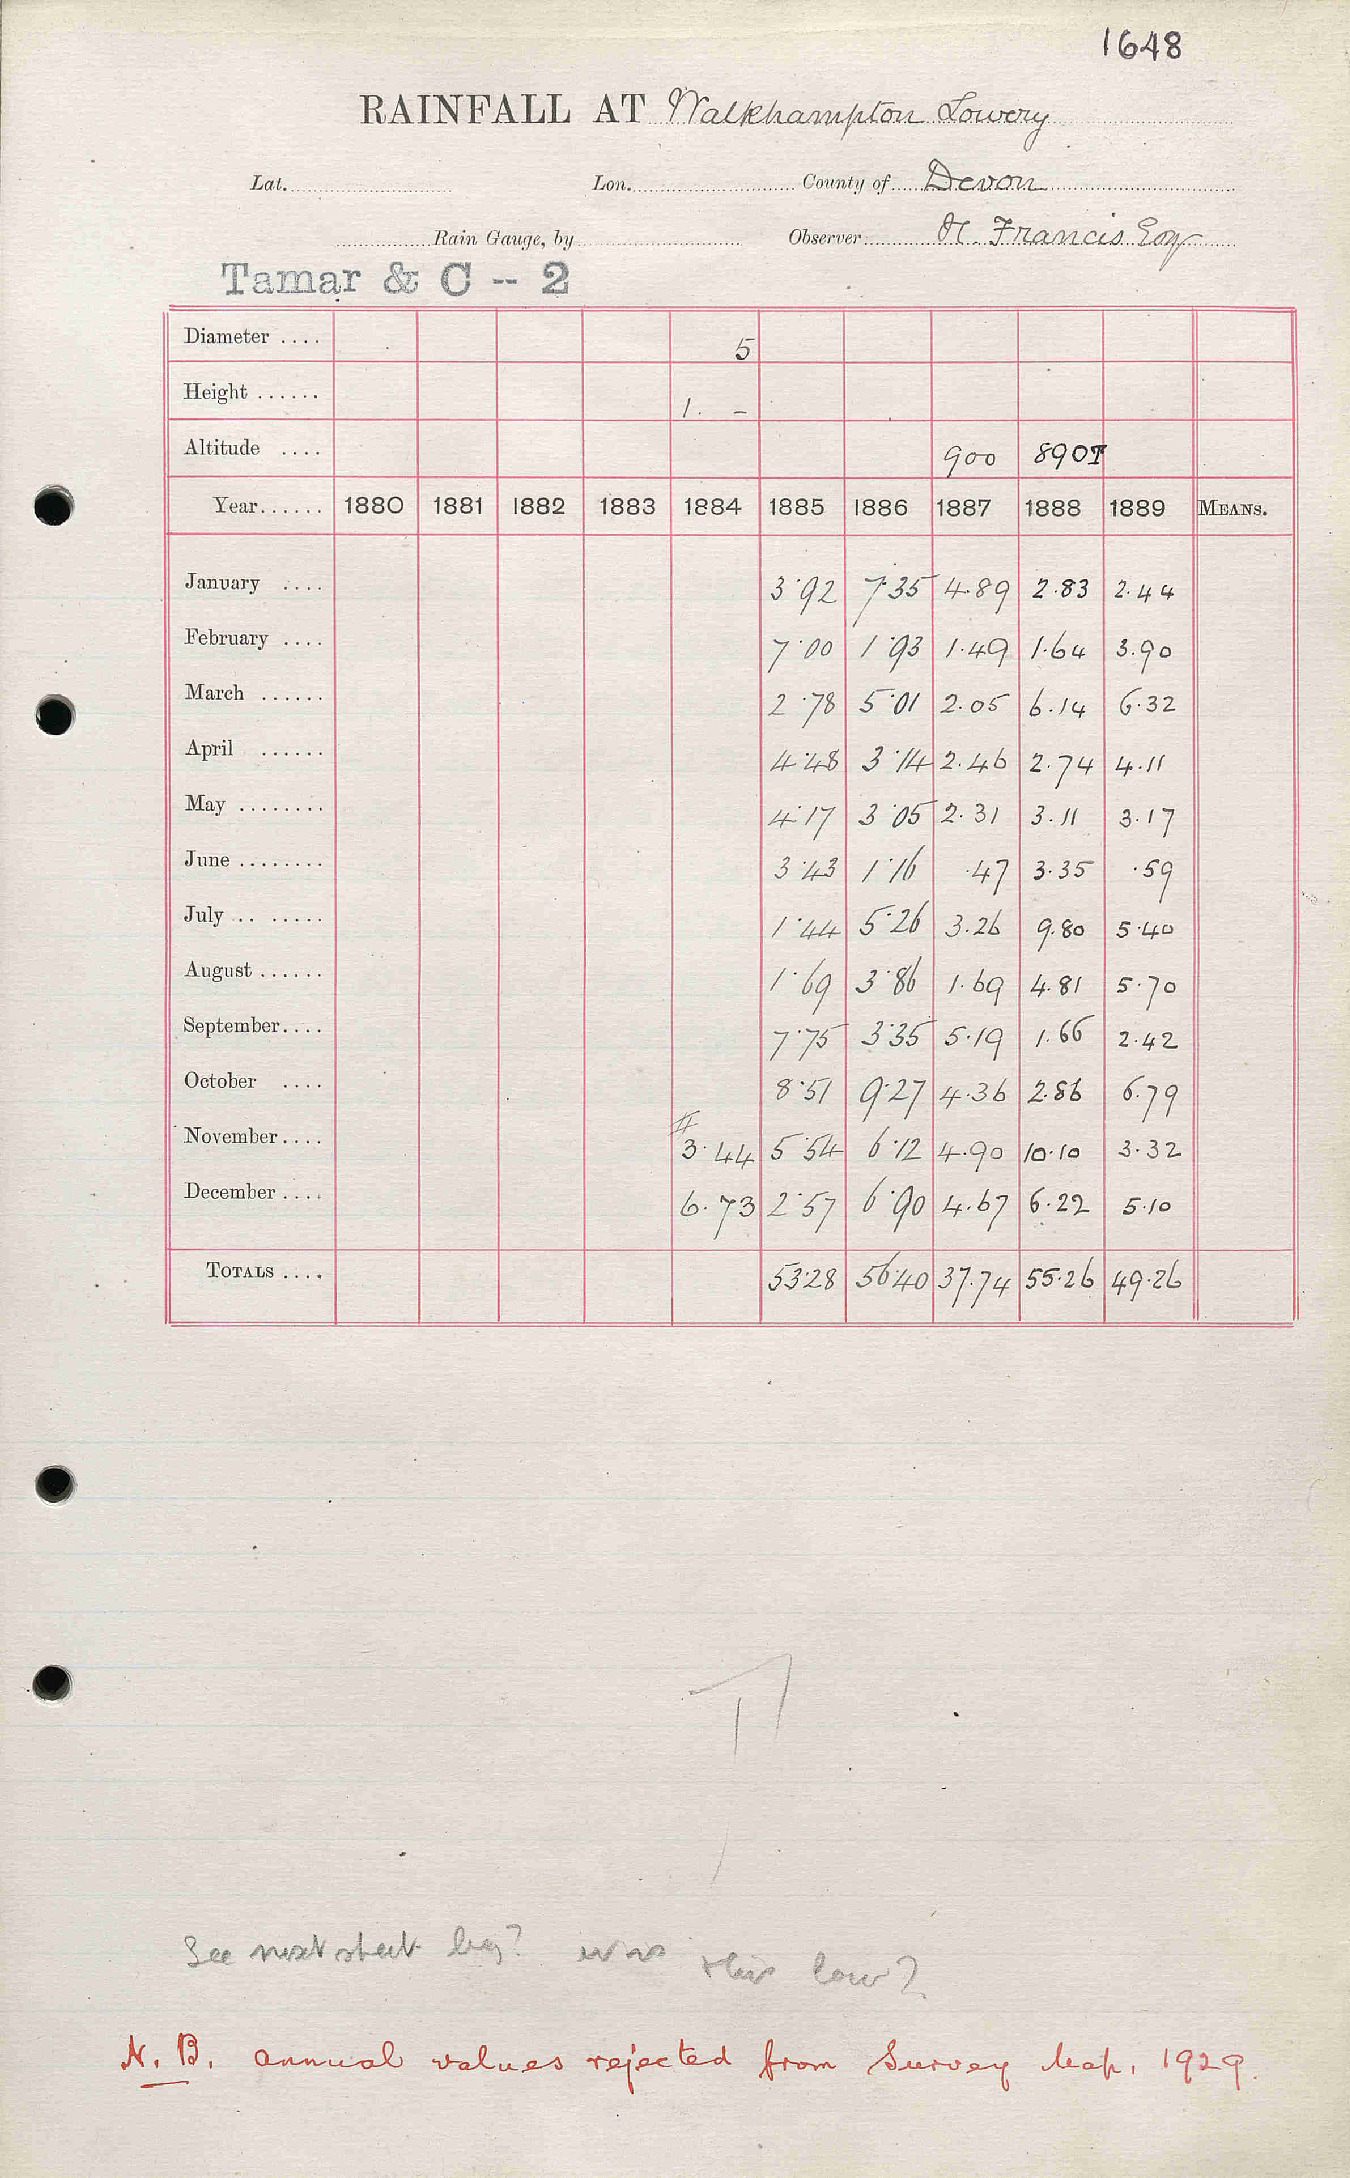 1648
RAINFALL AT Walkhampton Lowery
Lat. Lon. County of Devon
Rain Gauge, by Observer H. Francis Esq
Tamar & C -- 2
Diameter .... 5
Height ...... 1. -
Altitude .... 900 890T
Year...... 1880 1881 1882 1883 1884 1885 1886 1887 1888 1889 MEANS.
January .... 3.92 7.35 4.89 2.83 2.44
February .... 7.00 1.93 1.49 1.64 3.90
March ...... 2.78 5.01 2.05 6.14 6.32
April ...... 4.48 3.14 2.46 2.74 4.11
May ........ 4.17 3.05 2.31 3.11 3.17
June ........ 3.43 1.16 .47 3.35 .59
July .. ..... 1.44 5.26 3.26 9.80 5.40
August ...... 1.69 3.86 1.69 4.81 5.70
September.... 7.75 3.35 5.19 1.66 2.42
October .... 8.51 9.27 4.36 2.86 6.79
November.... # 3.44 5.54 6.12 4.90 10.10 3.32
December .... 6.73 2.57 6.90 4.67 6.22 5.10
TOTALS .... 53.28 56.40 37.74 55.26 49.26
See next sheet was this low?
N.B. annual values rejected from Survey Map, 1929.